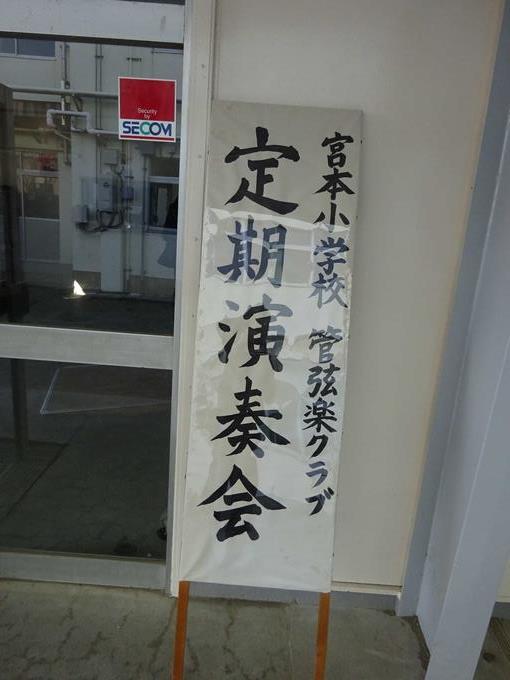 宮本小学校 管弦楽クラブ
定期演奏会
Security
by
SECOM